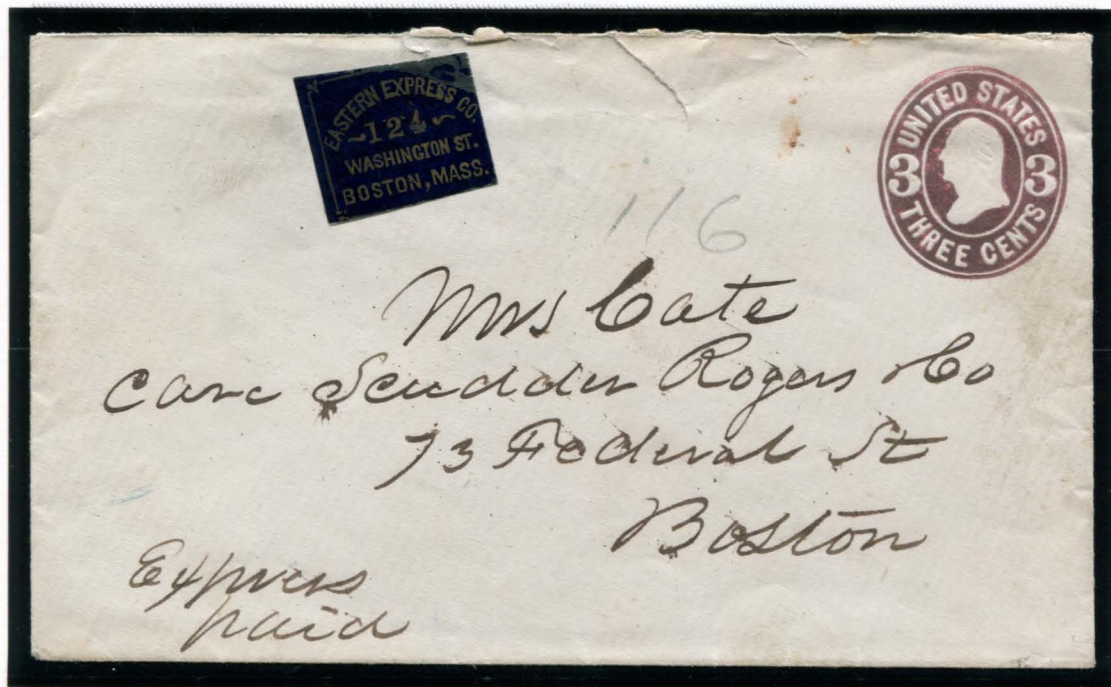 EASTERN EXPRESS CO.
124
WASHINGTON ST.
BOSTON, MASS.
UNITED STATES
3 3
THREE CENTS
116
Mrs Cate
care Scudder Rogers & Co
73 Federal St
Boston
Express
paid